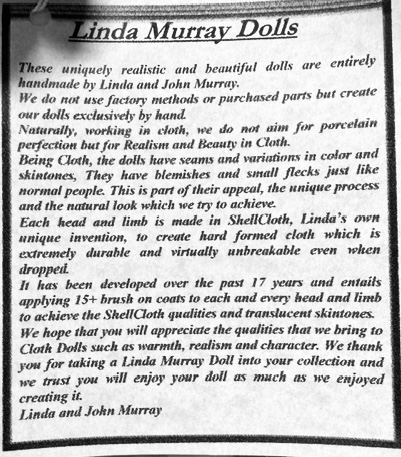 Linda Murray Dolls
These uniquely realistic and beautiful dolls are entirely
handmade by Linda and John Murray.
We do not use factory methods or purchased parts but create
our dolls exclusively by hand.
Naturally, working in cloth, we do not aim for porcelain
perfection but for Realism and Beauty in Cloth.
Being Cloth, the dolls have seams and variations in color and
skintones, They have blemishes and small flecks just like
normal people. This is part of their appeal, the unique process
and the natural look which we try to achieve.
Each head and limb is made in ShellCloth, Linda's own
unique invention, to create hard formed cloth which is
extremely durable and virtually unbreakable even when
dropped.
It has been developed over the past 17 years and entails
applying 15+ brush on coats to each and every head and limb
to achieve the ShellCloth qualities and translucent skintones.
We hope that you will appreciate the qualities that we bring to
Cloth Dolls such as warmth, realism and character. We thank
you for taking a Linda Murray Doll into your collection and
we trust you will enjoy your doll as much as we enjoyed
creating it.
Linda and John Murray